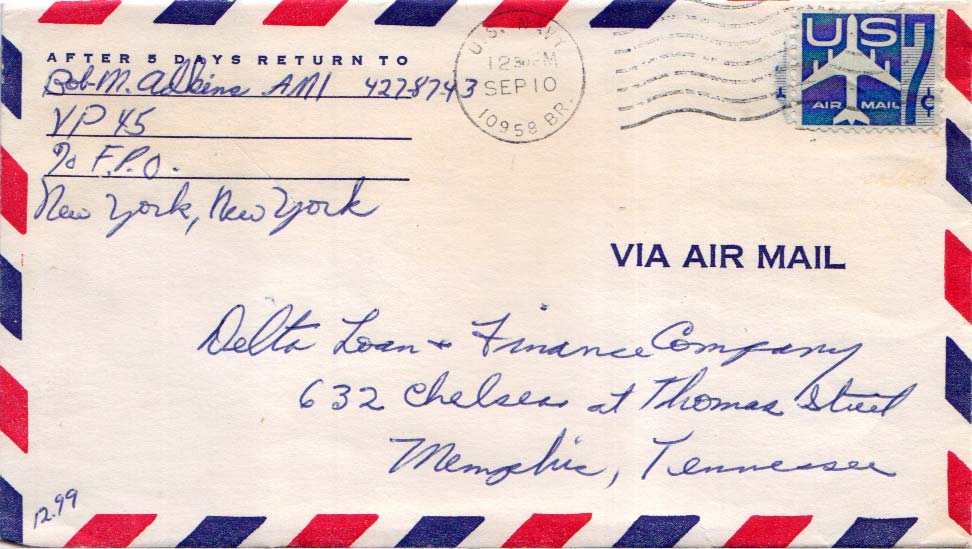 AFTER 5 DAYS RETURN TO
Bob M. Adkins AM1 4278743
VP 45
% F.P.O.
New York, New York
U.S. NAVY
12 30 PM
SEP 10
10958 BR.
US 7¢
AIR MAIL
VIA AIR MAIL
Delta Loan + Finance Company
632 Chelsea at Thomas Street
Memphis, Tennessee
12.99